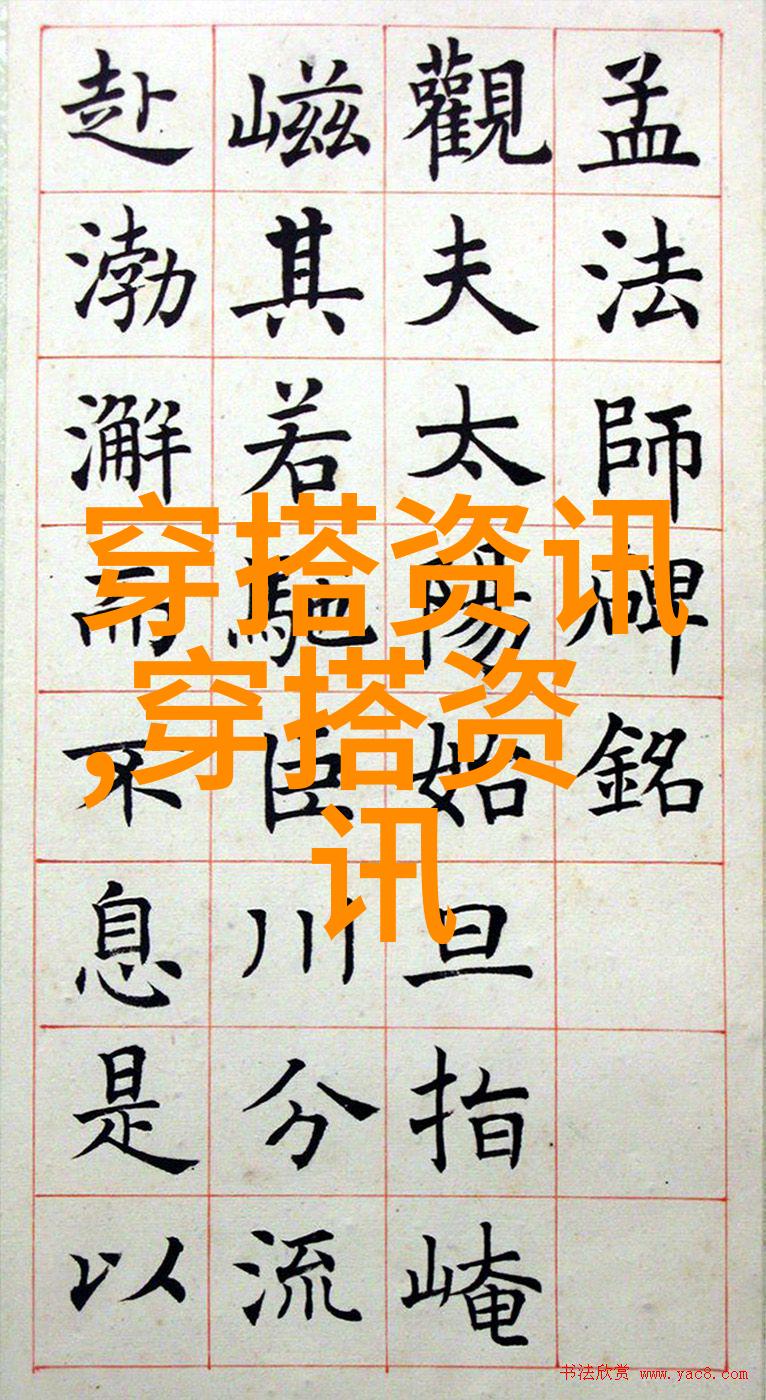 孟法師碑銘
觀夫太陽始旦指崦
嵫其若馳臣川分流
赴渤澥而不息是以
穿搭资讯
,穿搭资
讯
书法欣赏 www.yac8.com